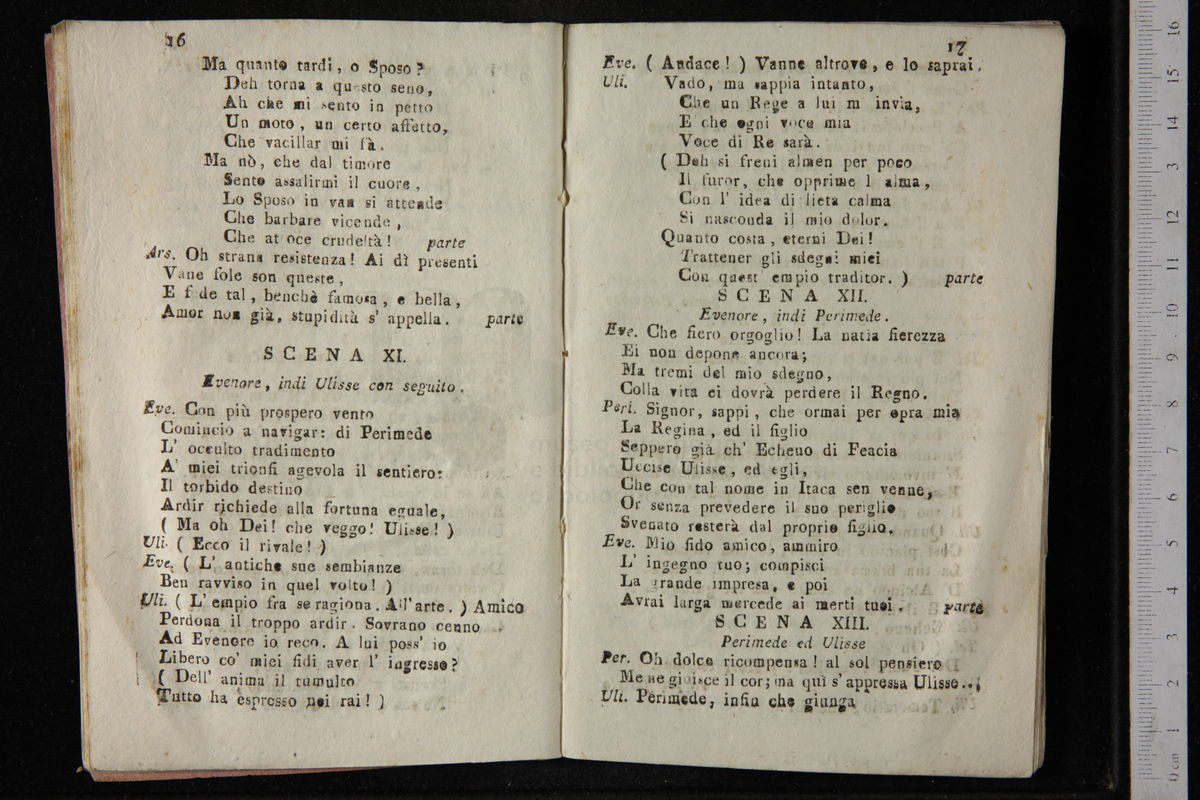 16
Ma quanto tardi, o Sposo?
Deh torna a questo seno,
Ah che mi sento in petto
Un moto, un certo affetto,
Che vacillar mi fà.
Ma nò, che dal timore
Sento assalirmi il cuore,
Lo Sposo in van si attende
Che barbare vicende,
Che at oce crudeltà! parte
Ars. Oh strana resistenza! Ai dì presenti
Vane fole son queste,
E f de tal, benchè famosa, e bella,
Amor non già, stupidità s' appella. parte
SCENA XI.
Evenore, indi Ulisse con seguito.
Eve. Con più prospero vento
Comincio a navigar: di Perimede
L' occulto tradimento
A' miei trionfi agevola il sentiero:
Il torbido destino
Ardir richiede alla fortuna eguale,
( Ma oh Dei! che veggo! Ulisse! )
Uli. ( Ecco il rivale! )
Eve. ( L' antiche sue sembianze
Ben ravviso in quel volto! )
Uli. ( L' empio fra se ragiona. All' arte. ) Amico
Perdona il troppo ardir. Sovrano cenno
Ad Evenore io reco. A lui poss' io
Libero co' miei fidi aver l' ingresso?
( Dell' anima il tumulto
Tutto ha espresso nei rai! )
17
Eve. ( Audace! ) Vanne altrove, e lo saprai.
Uli. Vado, ma sappia intanto,
Che un Rege a lui m invia,
E che ogni voce mia
Voce di Re sarà.
( Deh si freni almen per poco
Il furor, che opprime l alma,
Con l' idea di lieta calma
Si nasconda il mio dolor.
Quanto costa, eterni Dei!
Trattener gli sdegni miei
Con quest' empio traditor. ) parte
SCENA XII.
Evenore, indi Perimede.
Eve. Che fiero orgoglio! La natia fierezza
Ei non depone ancora;
Ma tremi del mio sdegno,
Colla vita ei dovrà perdere il Regno.
Peri. Signor, sappi, che ormai per opra mia
La Regina, ed il figlio
Seppero già ch' Echeno di Feacia
Uccise Ulisse, ed egli,
Che con tal nome in Itaca sen venne,
Or senza prevedere il suo periglio
Svenato resterà dal proprio figlio.
Eve. Mio fido amico, ammiro
L' ingegno tuo; compisci
La grande impresa, e poi
Avrai larga mercede ai merti tuoi. parte
SCENA XIII.
Perimede ed Ulisse
Per. Oh dolce ricompensa! al sol pensiero
Me ne gioisce il cor; ma quì s' appressa Ulisse...
Uli. Perimede, infin che giunga